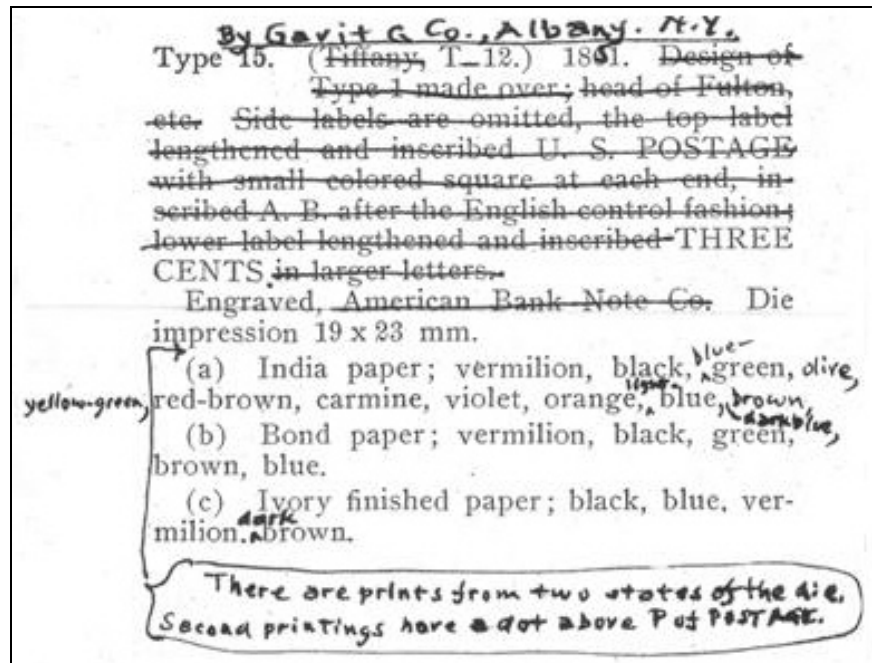 By Gavit & Co., Albany. N.Y.
Type 15. (Tiffany, T-12.) 1851. Design of
Type 1 made over; head of Fulton,
etc. Side labels are omitted, the top label
lengthened and inscribed U. S. POSTAGE
with small colored square at each end, in-
scribed A. B. after the English control fashion;
lower label lengthened and inscribed THREE
CENTS. in larger letters.
Engraved, American Bank Note Co. Die
impression 19 x 23 mm.
blue-
(a) India paper; vermilion, black, green, olive,
light-
yellow-green, red-brown, carmine, violet, orange, blue, brown,
dark blue,
(b) Bond paper; vermilion, black, green,
brown, blue.
(c) Ivory finished paper; black, blue, ver-
dark
milion. brown.
There are prints from two states of the die.
Second printings have a dot above P of POSTAGE.